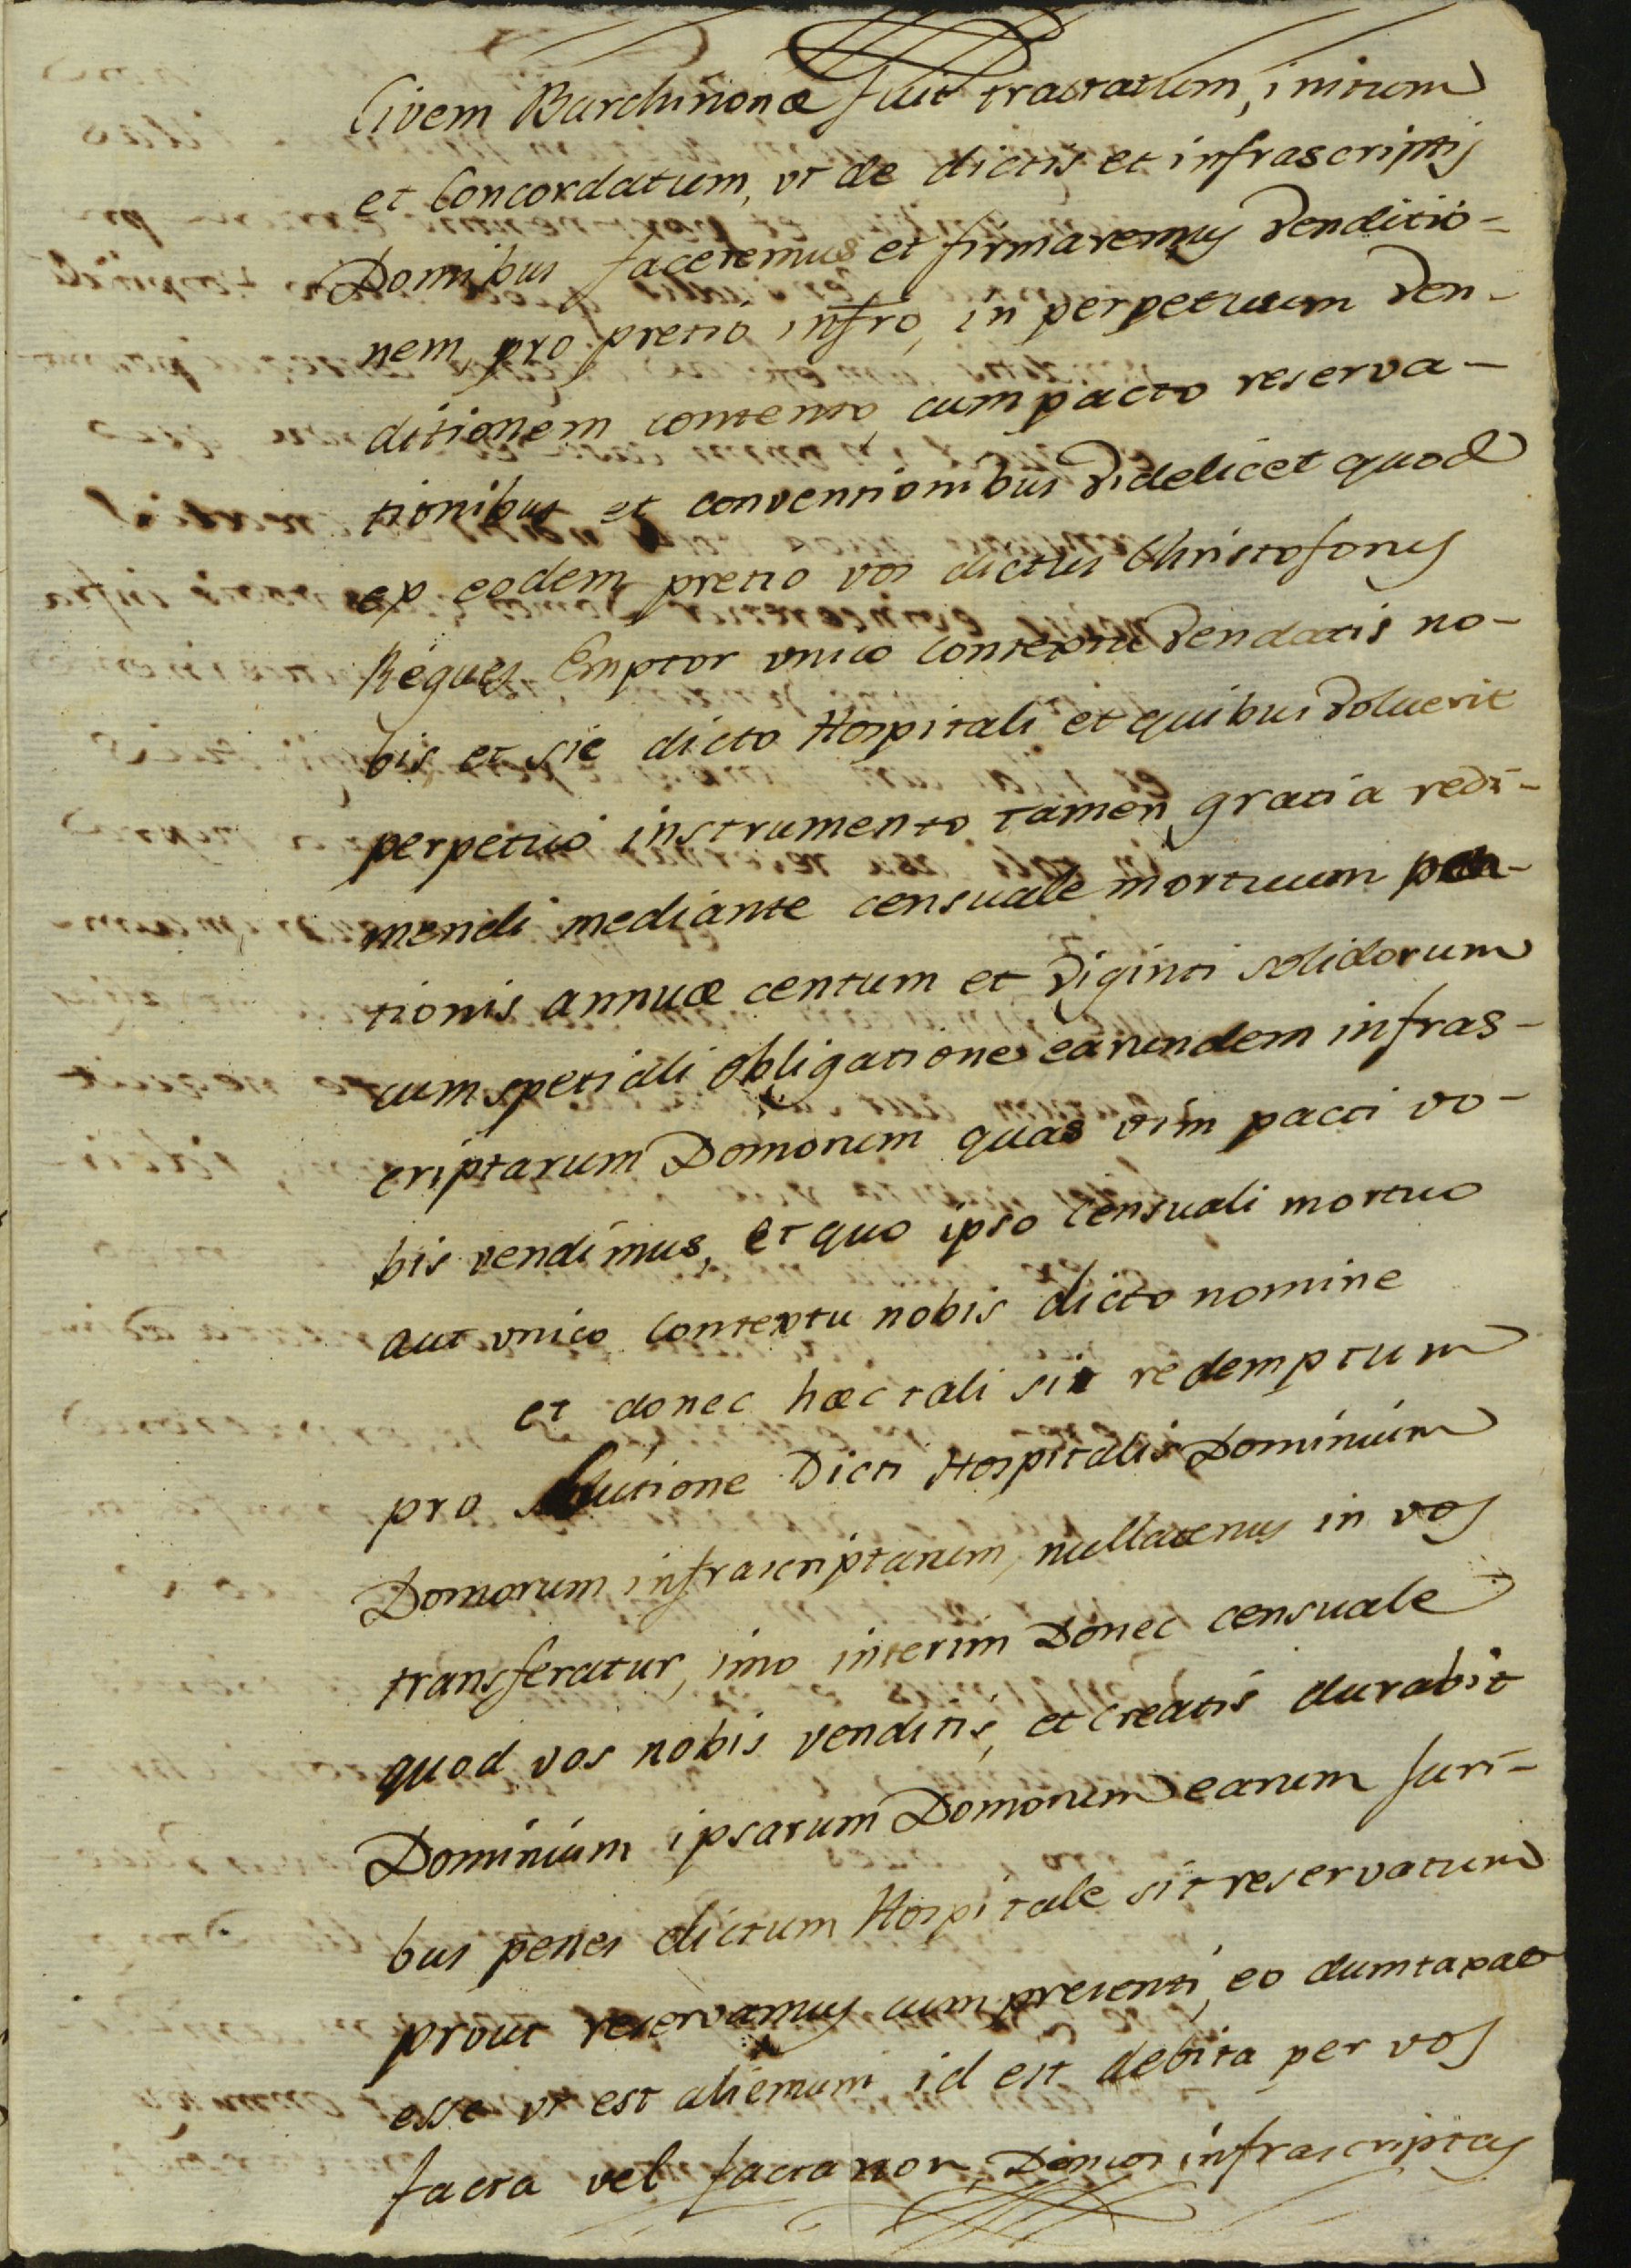 Civem Barchinonæ fuit tractatum, initum
et Concordatum, vt de dictis et infrascriptis
Domibus faceremus et firmaremus Venditio-
nem, pro pretio infro, in perpetuum Ven-
ditionem contento, cum pacto reserva-
tionibus et conventionibus Videlicet quod
ex eodem pretio vos dictus Christoforus
Regues Emptor vnico Contextu Vendatis no-
bis et sic dicto Hospitali et quibus Voluerit
perpetuo instrumento tamen gratia redi-
mendi mediante censuale mortuum pen-
tionis annuæ centum et Viginti solidorum
cum spetiali obligatione earundem infras-
criptarum Domorum quas vim pacti vo-
bis vendimus, et quo ipso Censuali mortuo
aut vnico Contextu nobis dicto nomine
et donec hæc tali sit redemptum
pro solutione Dicti Hospitalis Dominium
Domorum infrascriptarum, nullatenus in vos
transferatur, imo interim Donec censuale
quod vos nobis venditis, et creatis durabit
Dominium ipsarum Domorum earum Juri-
bus penes dictum Hospitale sit reservatum
prout reservamus cum presenti, eo dumtaxat
esse vt est alienum id est debita per vos
facta vel facta non Domos infrascriptas